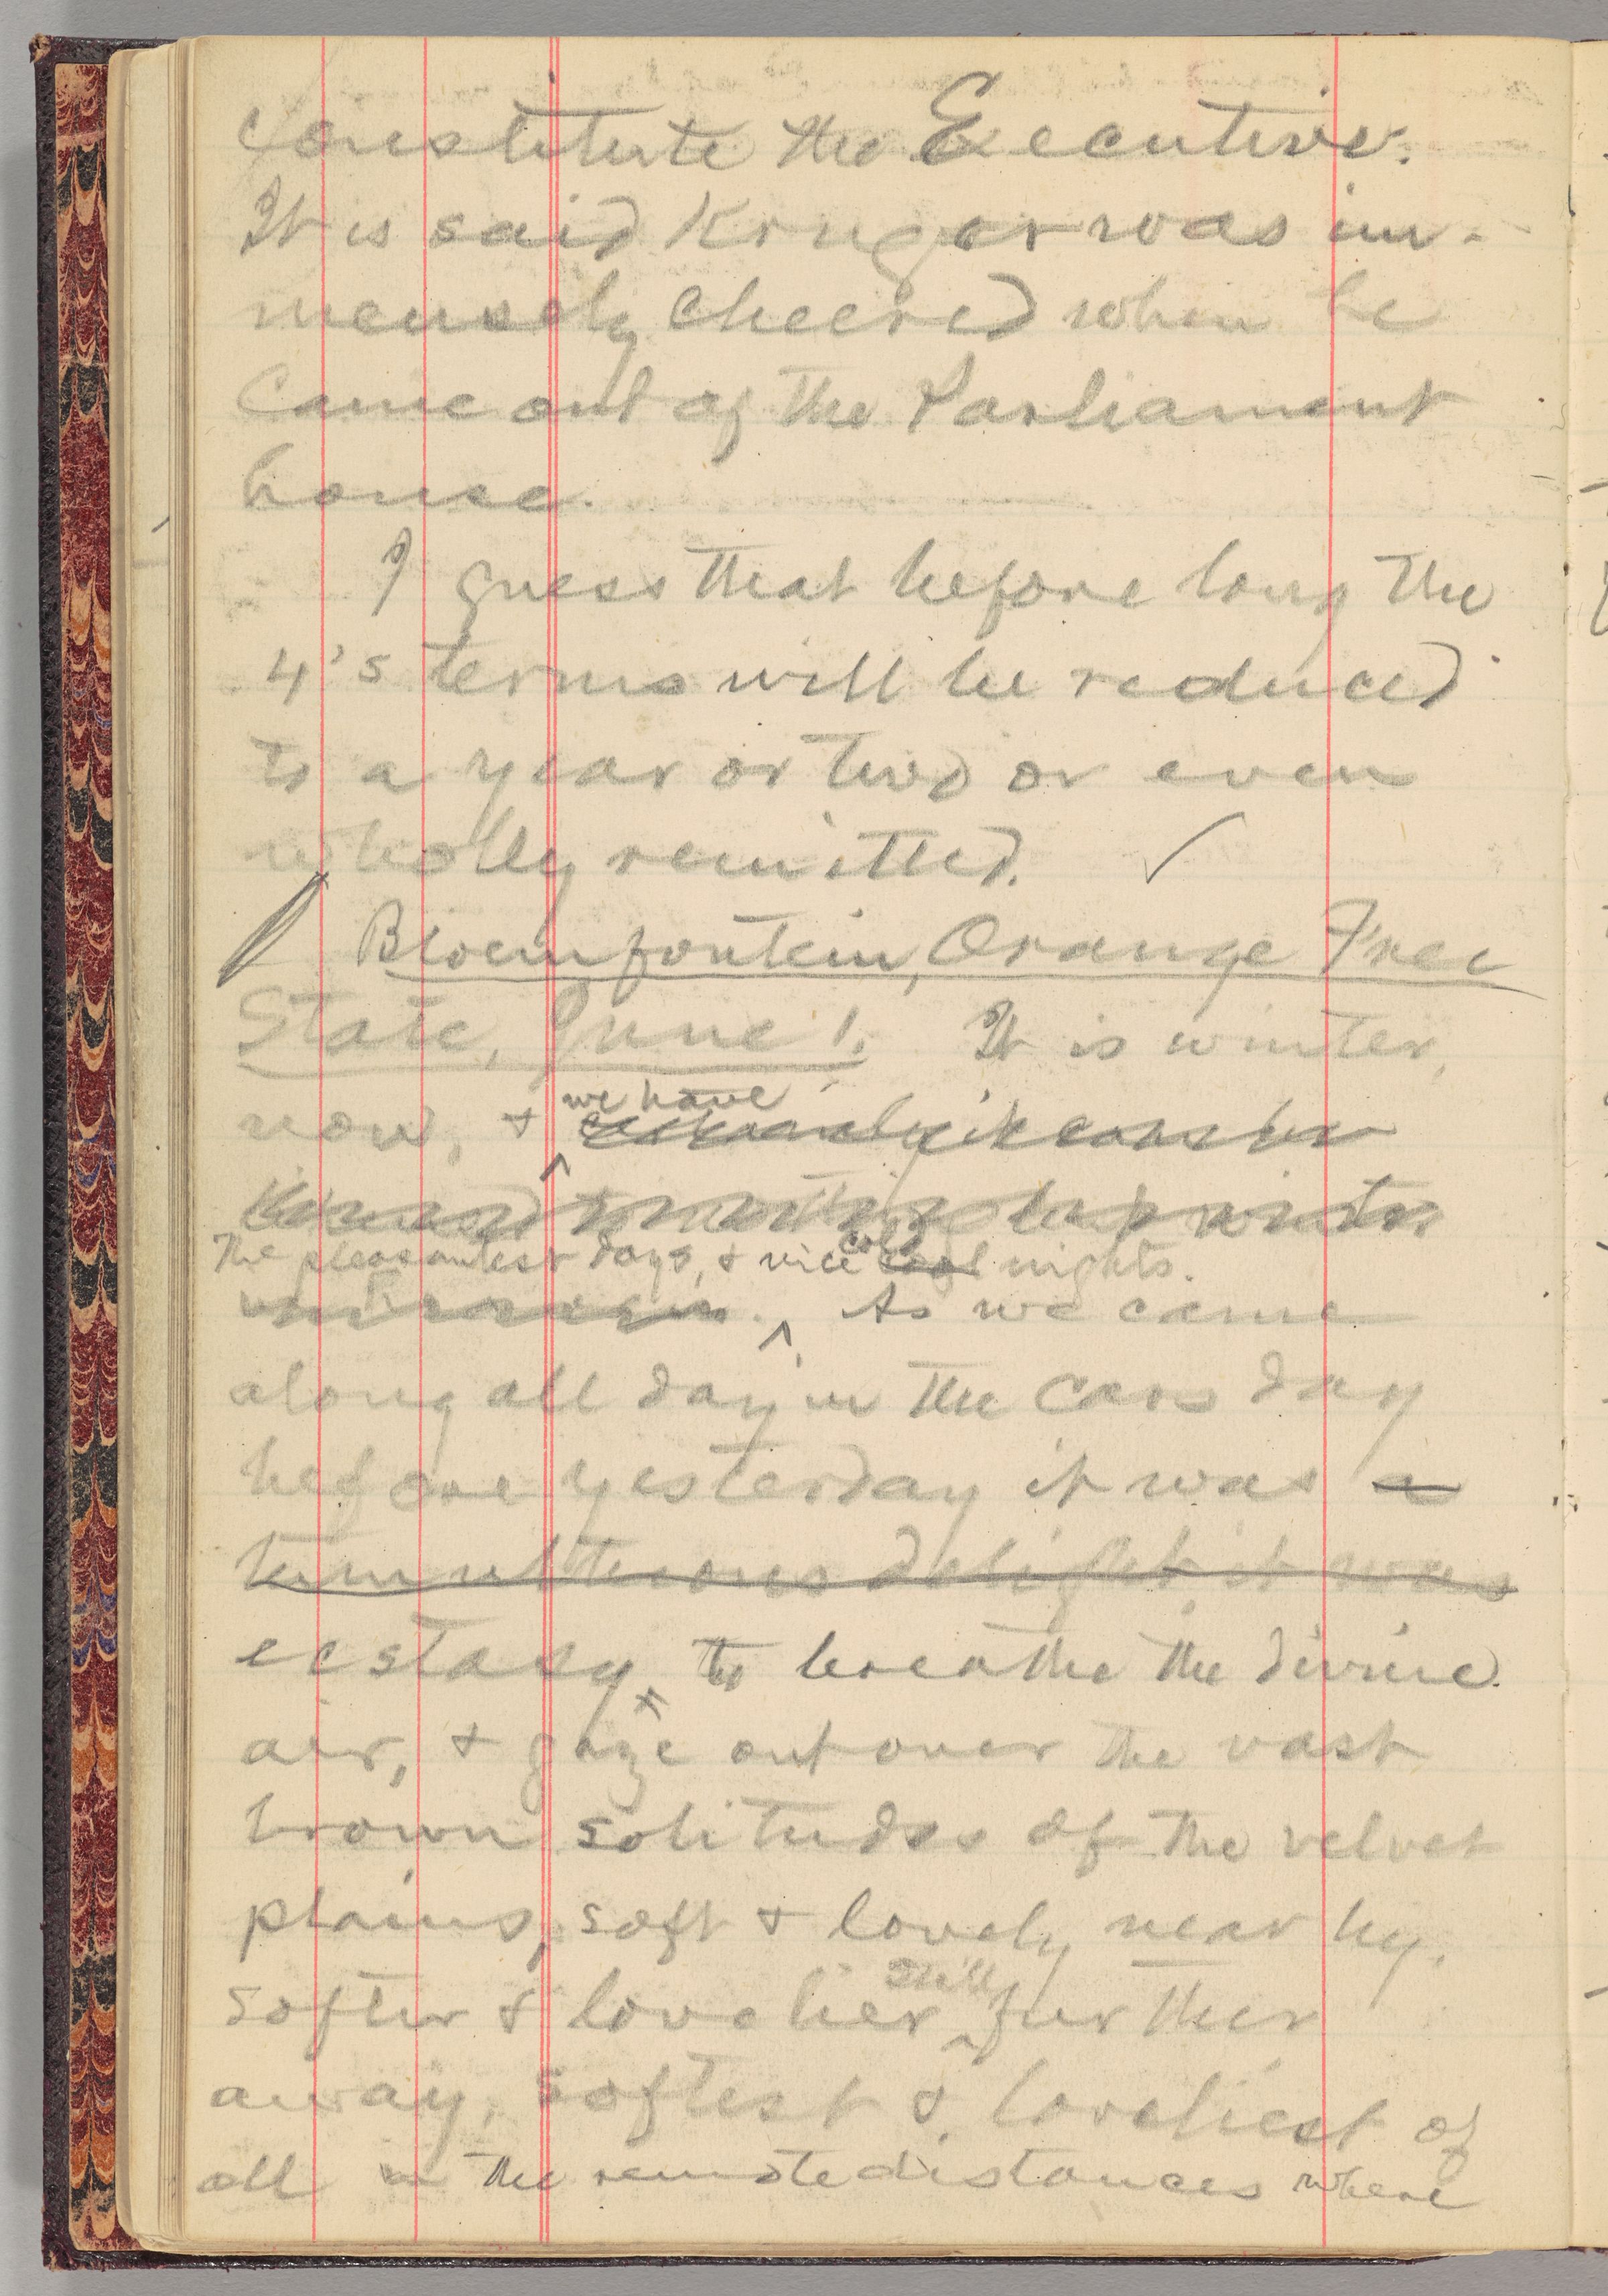 constitute the Executive.
It is said Kruger was im-
mensely cheered when he
came out of the Parliament
house.
I guess that before long the
4's terms will be reduced
to a year or two or even
wholly remitted. ✓
Bloemfontein, Orange Free
State, June 1. It is winter,
we have
now, &
the pleasantest days, & nice cold cool nights.
As we came
along all day in the cars day
before yesterday it was a
tumultuous delight it was
ecstasy to breathe the divine
air, & gaze out over the vast
brown solitudes of the velvet
plains, soft & lovely near by,
still
softer & lovelier further
away, softest & loveliest of
all in the remote distances where